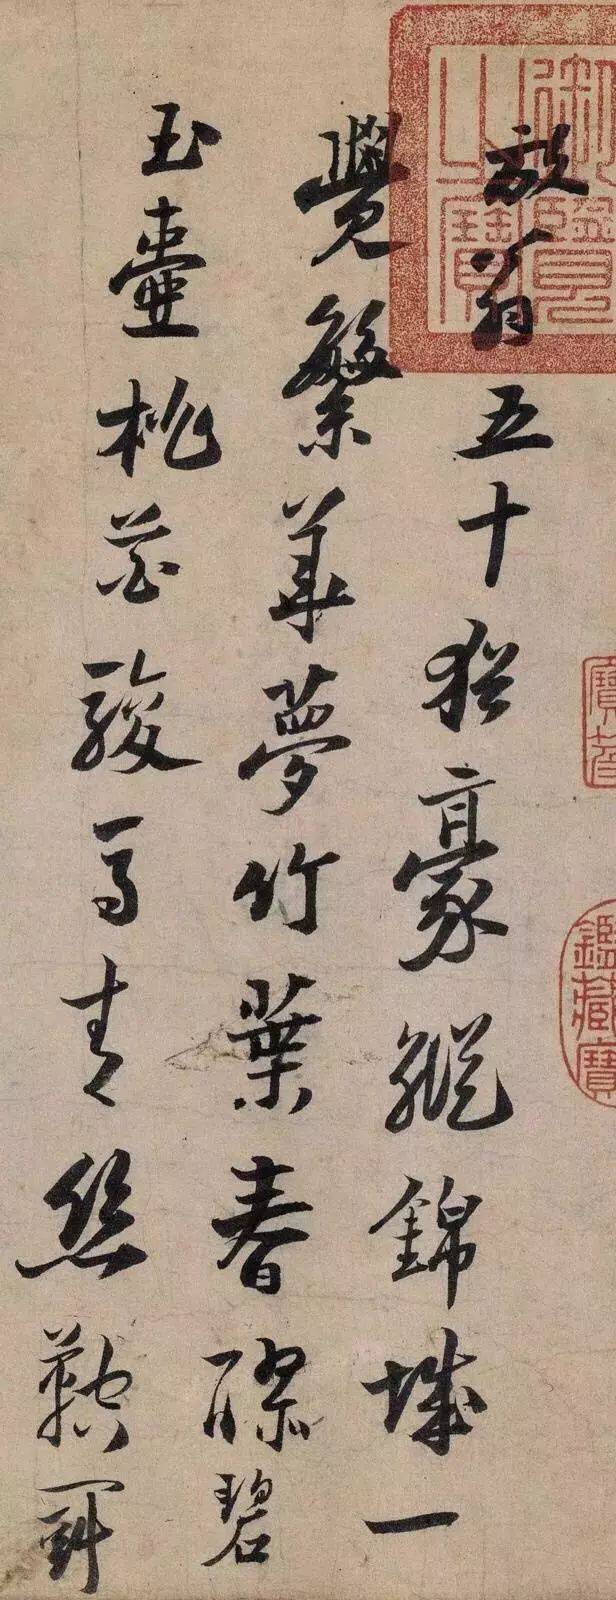 御覽之寶
寶笈
鑑藏寶
放翁五十猶豪縱錦城一
覺繁華夢竹葉春醪碧
玉壺桃花駿馬青絲鞚鬭